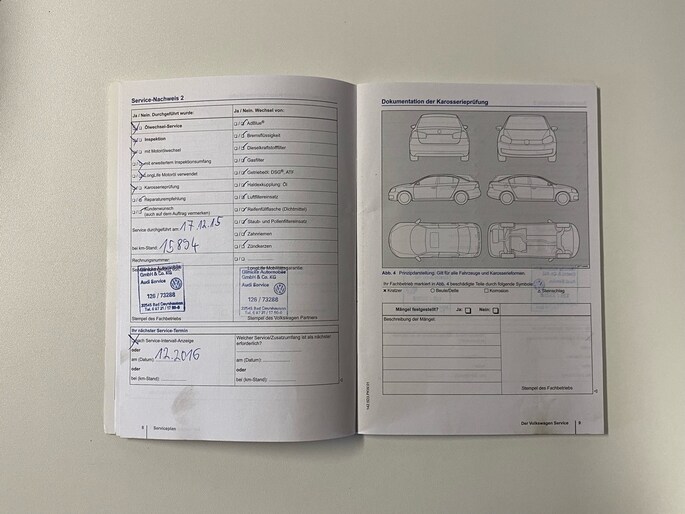 Service-Nachweis 2
Ja / Nein: Durchgeführt wurde:
Ölwechsel-Service
Inspektion
mit Motorölwechsel
mit erweitertem Inspektionsumfang
LongLife Motoröl verwendet
Karosserieprüfung
Reparaturempfehlung
Kundenwunsch
(auch auf dem Auftrag vermerken)
Service durchgeführt am: 17.12.15
bei km-Stand: 15894
Rechnungsnummer:
GmbH & Co. KG
Audi Service
126 / 73288
32545 Bad Oeynhausen
Stempel des Fachbetriebs
Ja / Nein. Wechsel von:
AdBlue®
Bremsflüssigkeit
Dieselkraftstofffilter
Gasfilter
Getriebeöl: DSG®, ATF
Haldexkupplung: Öl
Luftfiltereinsatz
Reifenfüllflasche (Dichtmittel)
Staub- und Pollenfiltereinsatz
Zahnriemen
Zündkerzen
LongLife Mobilitätsgarantie:
GmbH & Co. KG
Audi Service
126 / 73288
32545 Bad Oeynhausen
Stempel des Volkswagen Partners
Ihr nächster Service-Termin
nach Service-Intervall-Anzeige
oder
am (Datum): 12.2016
oder
bei (km-Stand):
Welcher Service/Zusatzumfang ist als nächster
erforderlich?
am (Datum):
oder
bei (km-Stand):
8 Serviceplan
Dokumentation der Karosserieprüfung
Abb. 4 Prinzipdarstellung: Gilt für alle Fahrzeuge und Karosserieformen.
Ihr Fachbetrieb markiert in Abb. 4 beschädigte Teile durch folgende Symbole:
Kratzer
Beule/Delle
Korrosion
Steinschlag
Mängel festgestellt? Ja: Nein:
Beschreibung der Mängel:
Stempel des Fachbetriebs
Der Volkswagen Service 9